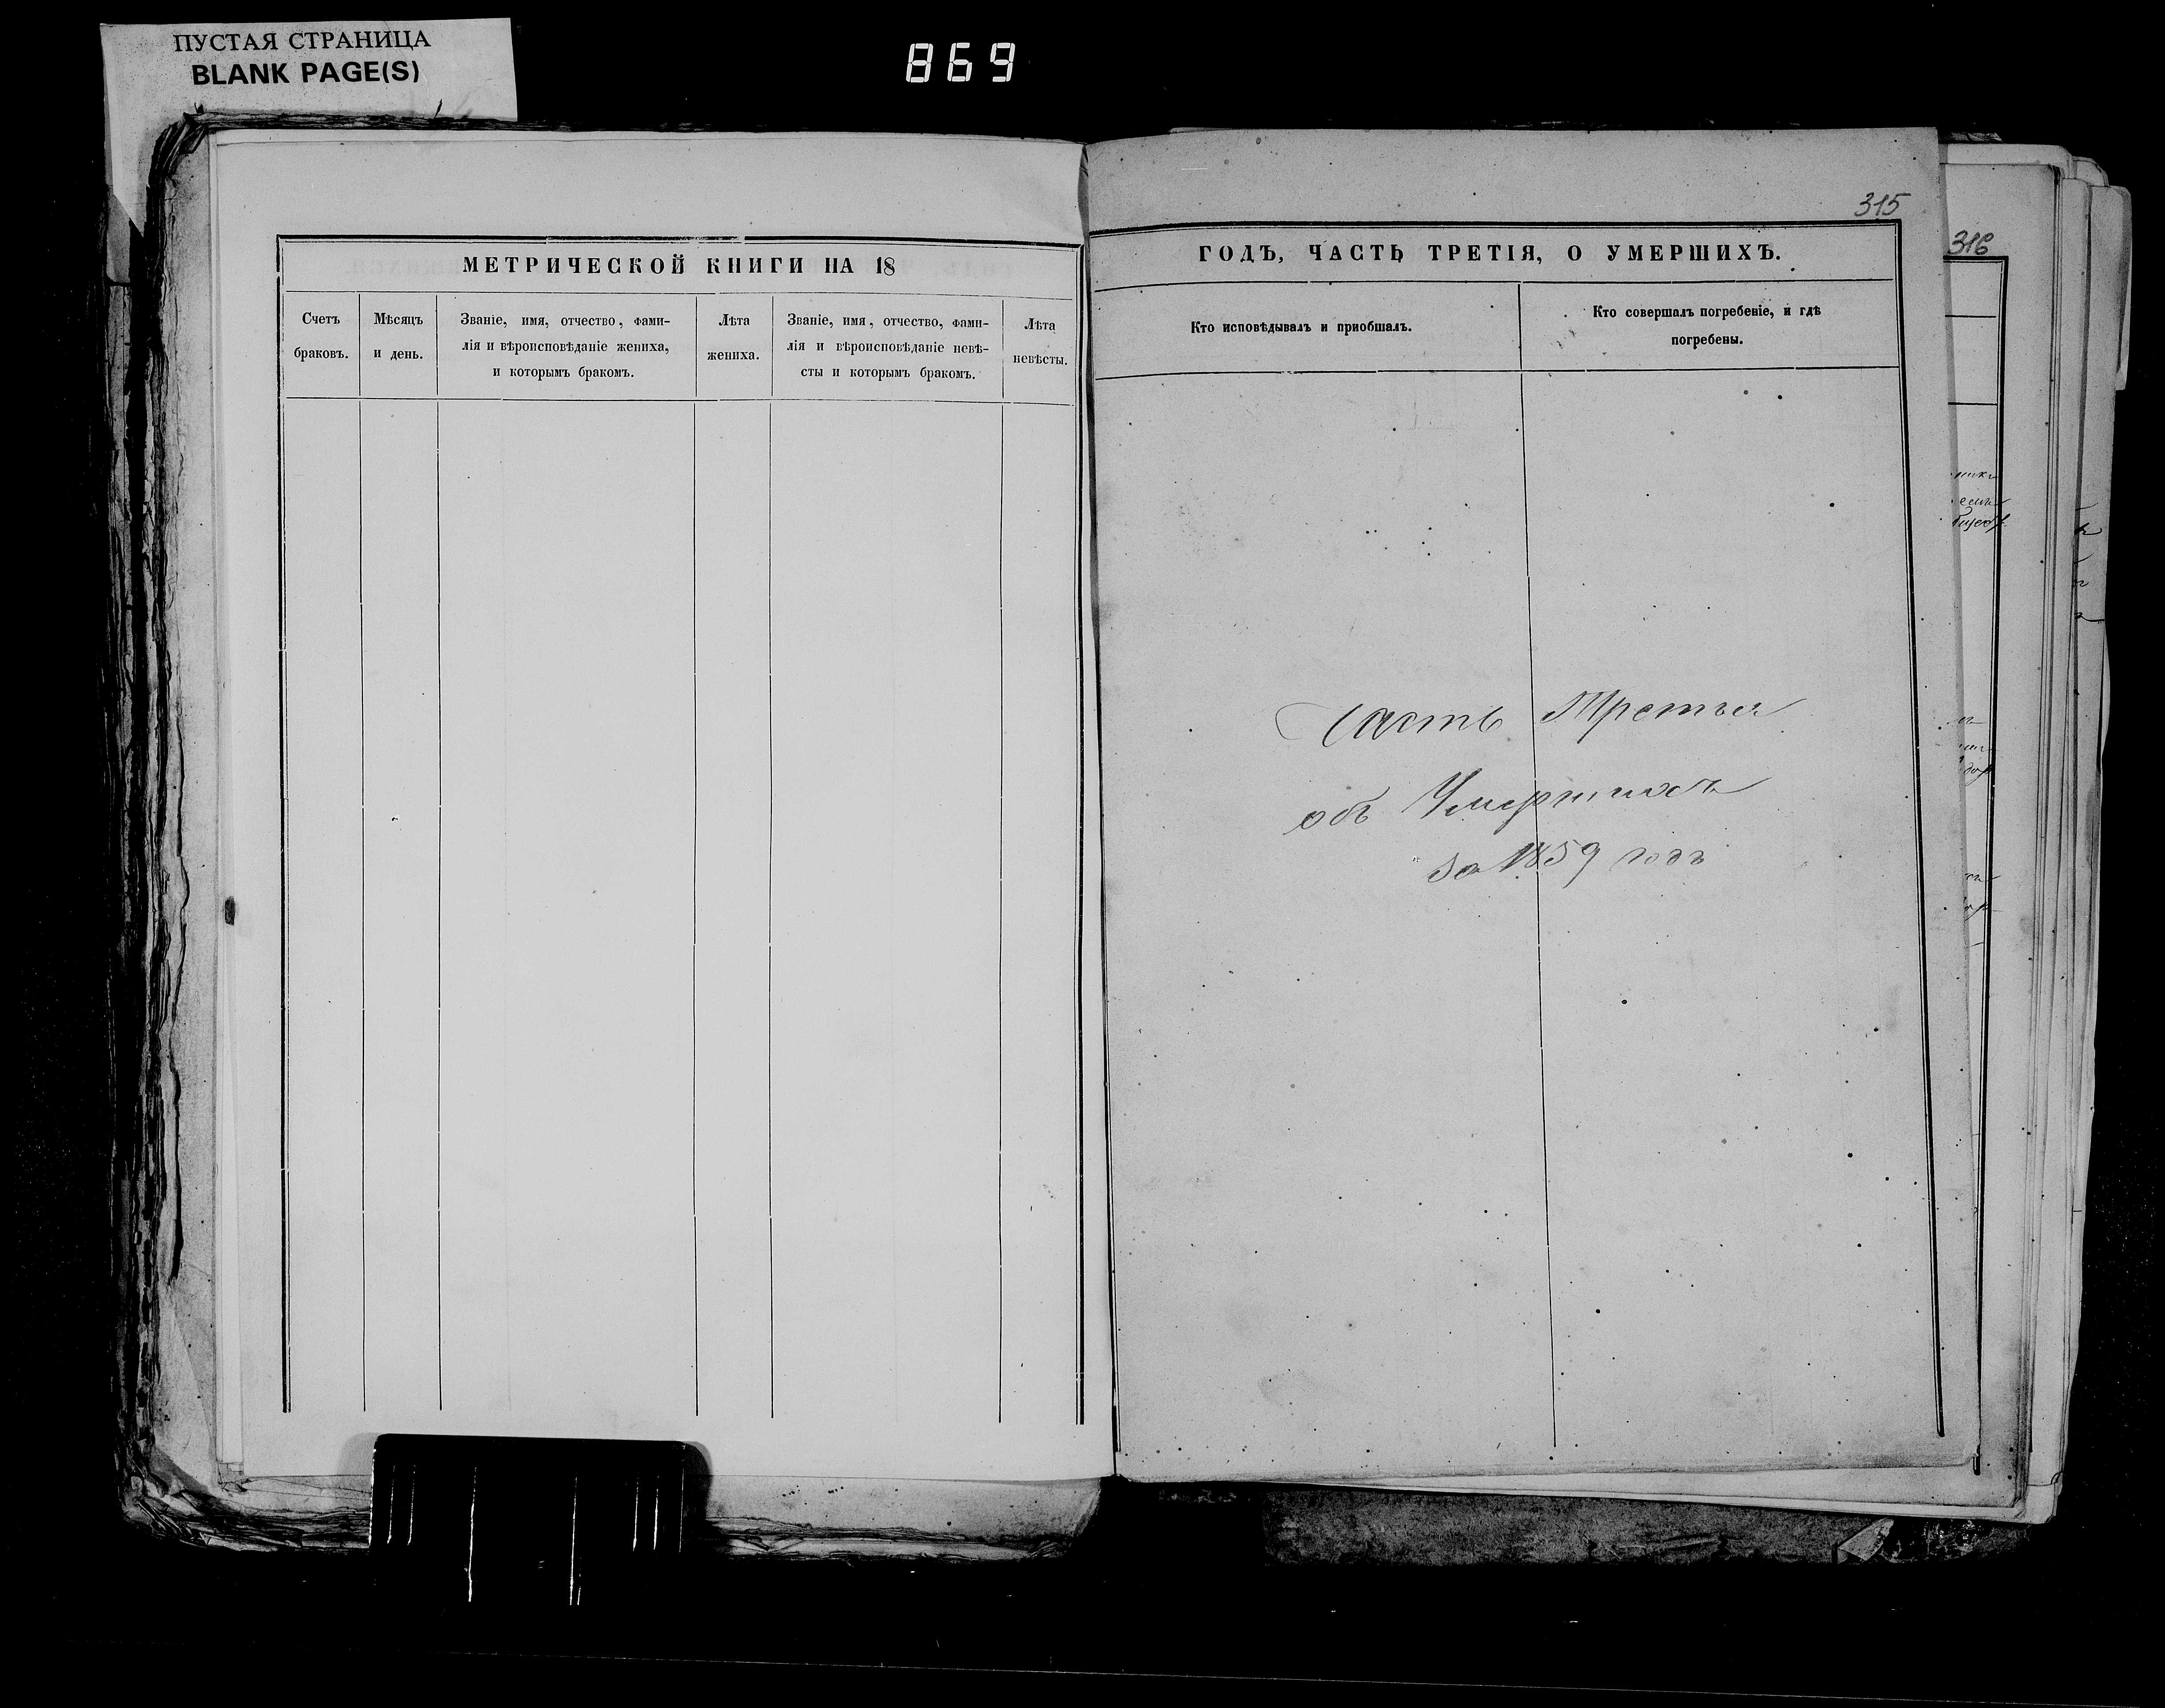 ПУСТАЯ СТРАНИЦА
BLANK PAGE(S)
869
МЕТРИЧЕСКОЙ КНИГИ НА 18
Счетъ
браковъ.
Мѣсяцъ
и день.
Званіе, имя, отчество, фами-
лія и вѣроисповѣданіе жениха,
и которымъ бракомъ.
Лѣта
жениха.
Званіе, имя, отчество, фами-
лія и вѣроисповѣданіе невѣ-
сты и которымъ бракомъ.
Лѣта
невѣсты.
315
ГОДЪ, ЧАСТЬ ТРЕТІЯ, О УМЕРШИХЪ.
Кто исповѣдывалъ и приобшалъ.
Кто совершалъ погребеніе, и гдѣ
погребены.
Часть Третья
объ Умершихъ
за 1859 годъ
316